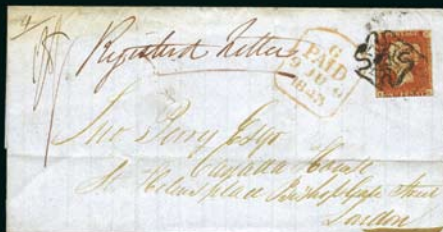 Registered Letter
G
PAID
9 JU 9
1843
Jno Perry Esqr
Canada House
St Helens place Bishopsgate Street
London